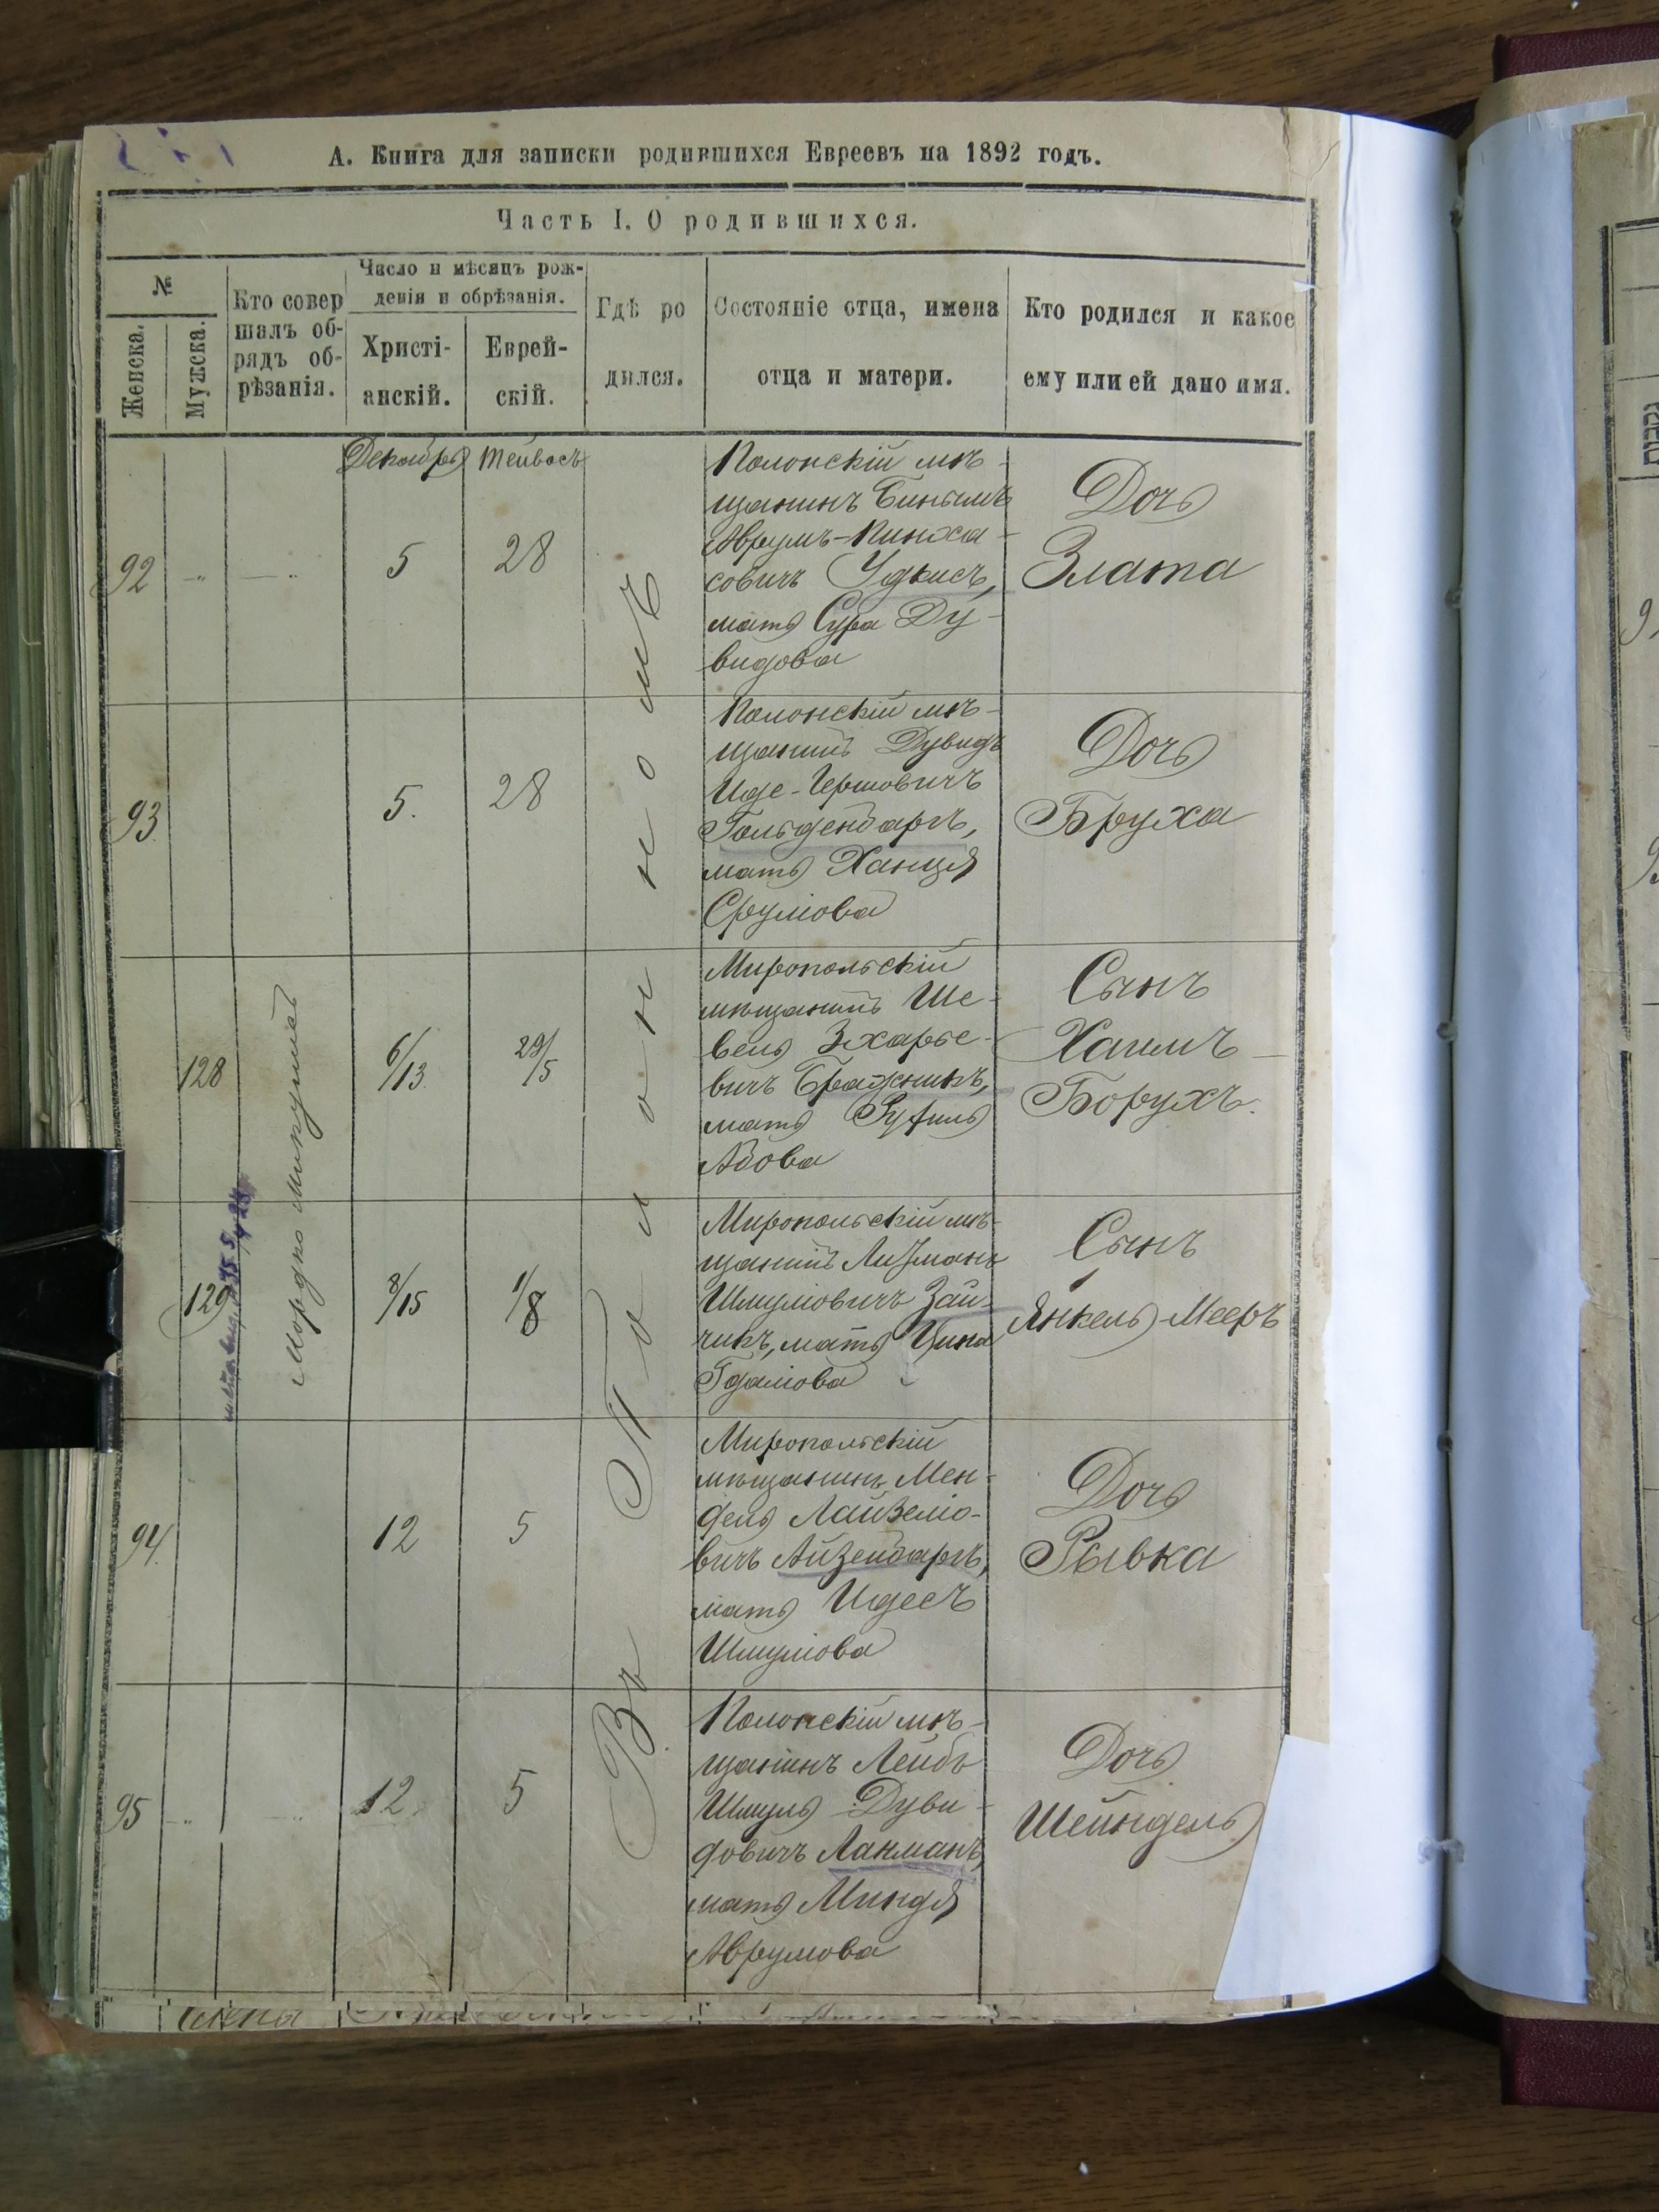 А. Книга для записки родившихся Евреевъ на 1892 годъ.
Часть I. О родившихся.
№
Женска.
Мужска.
Кто совер
шалъ об-
рядъ об-
рѣзанія.
Число и мѣсяцъ рож-
денія и обрѣзанія.
Христі-
анскій.
Еврей-
скій.
Гдѣ ро
дился.
Состояніе отца, имена
отца и матери.
Кто родился и какое
ему или ей дано имя.
Декабрь
Тейвесъ
Въ Полонномъ
92
5
28
Полонскій мѣ-
щанинъ Биньямъ
Аврумъ-Пинха-
совичъ Удкисъ,
мать Сура Ду-
видова
Дочь
Злата
93
5.
28
Полонскій мѣ-
щанинъ Дувидъ
Иде-Гершовичъ
Гольденбаргъ,
мать Ханця
Срулiова
Дочь
Бруха
Мордко
128
6/13
29/5
Миропольскій
мѣщанинъ Ше-
вель Зхарье-
вичъ Бражникъ,
мать
Абова
Сынъ
Хаимъ-
Борухъ.
129
8/15
1/8
Миропольскій мѣ-
щанинъ Лизманъ
Шмулiовичъ Зай-
чикъ, мать Цина
Гдалiова
Сынъ
Янкель-Мееръ
94
12
5
Миропольскій
мѣщанинъ Мен-
дель Лайзелiо-
вичъ Айзенбаргъ,
мать Идесъ
Шмулiова
Дочь
Рывка
95
12
5
Полонскій мѣ-
щанинъ Лейбъ
Шмуль Дуви-
довичъ Лахманъ,
мать Миндя
Аврумова
Дочь
Шейндель